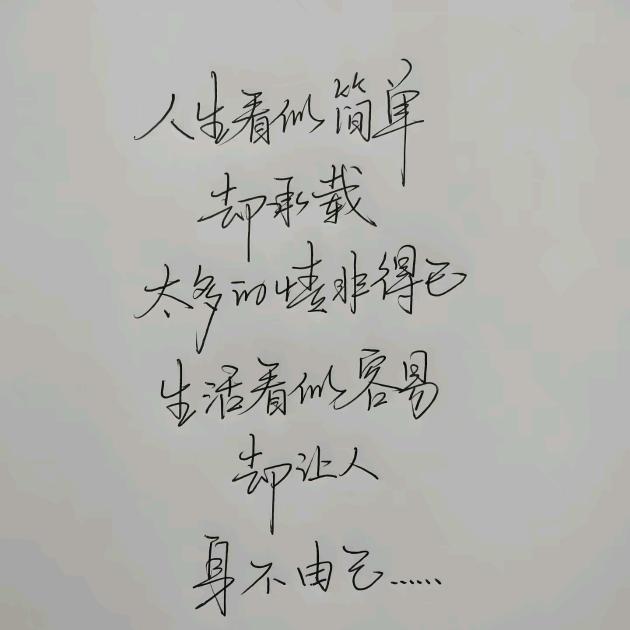 人生看似简单
却承载
太多的情非得已
生活看似容易
却让人
身不由己……